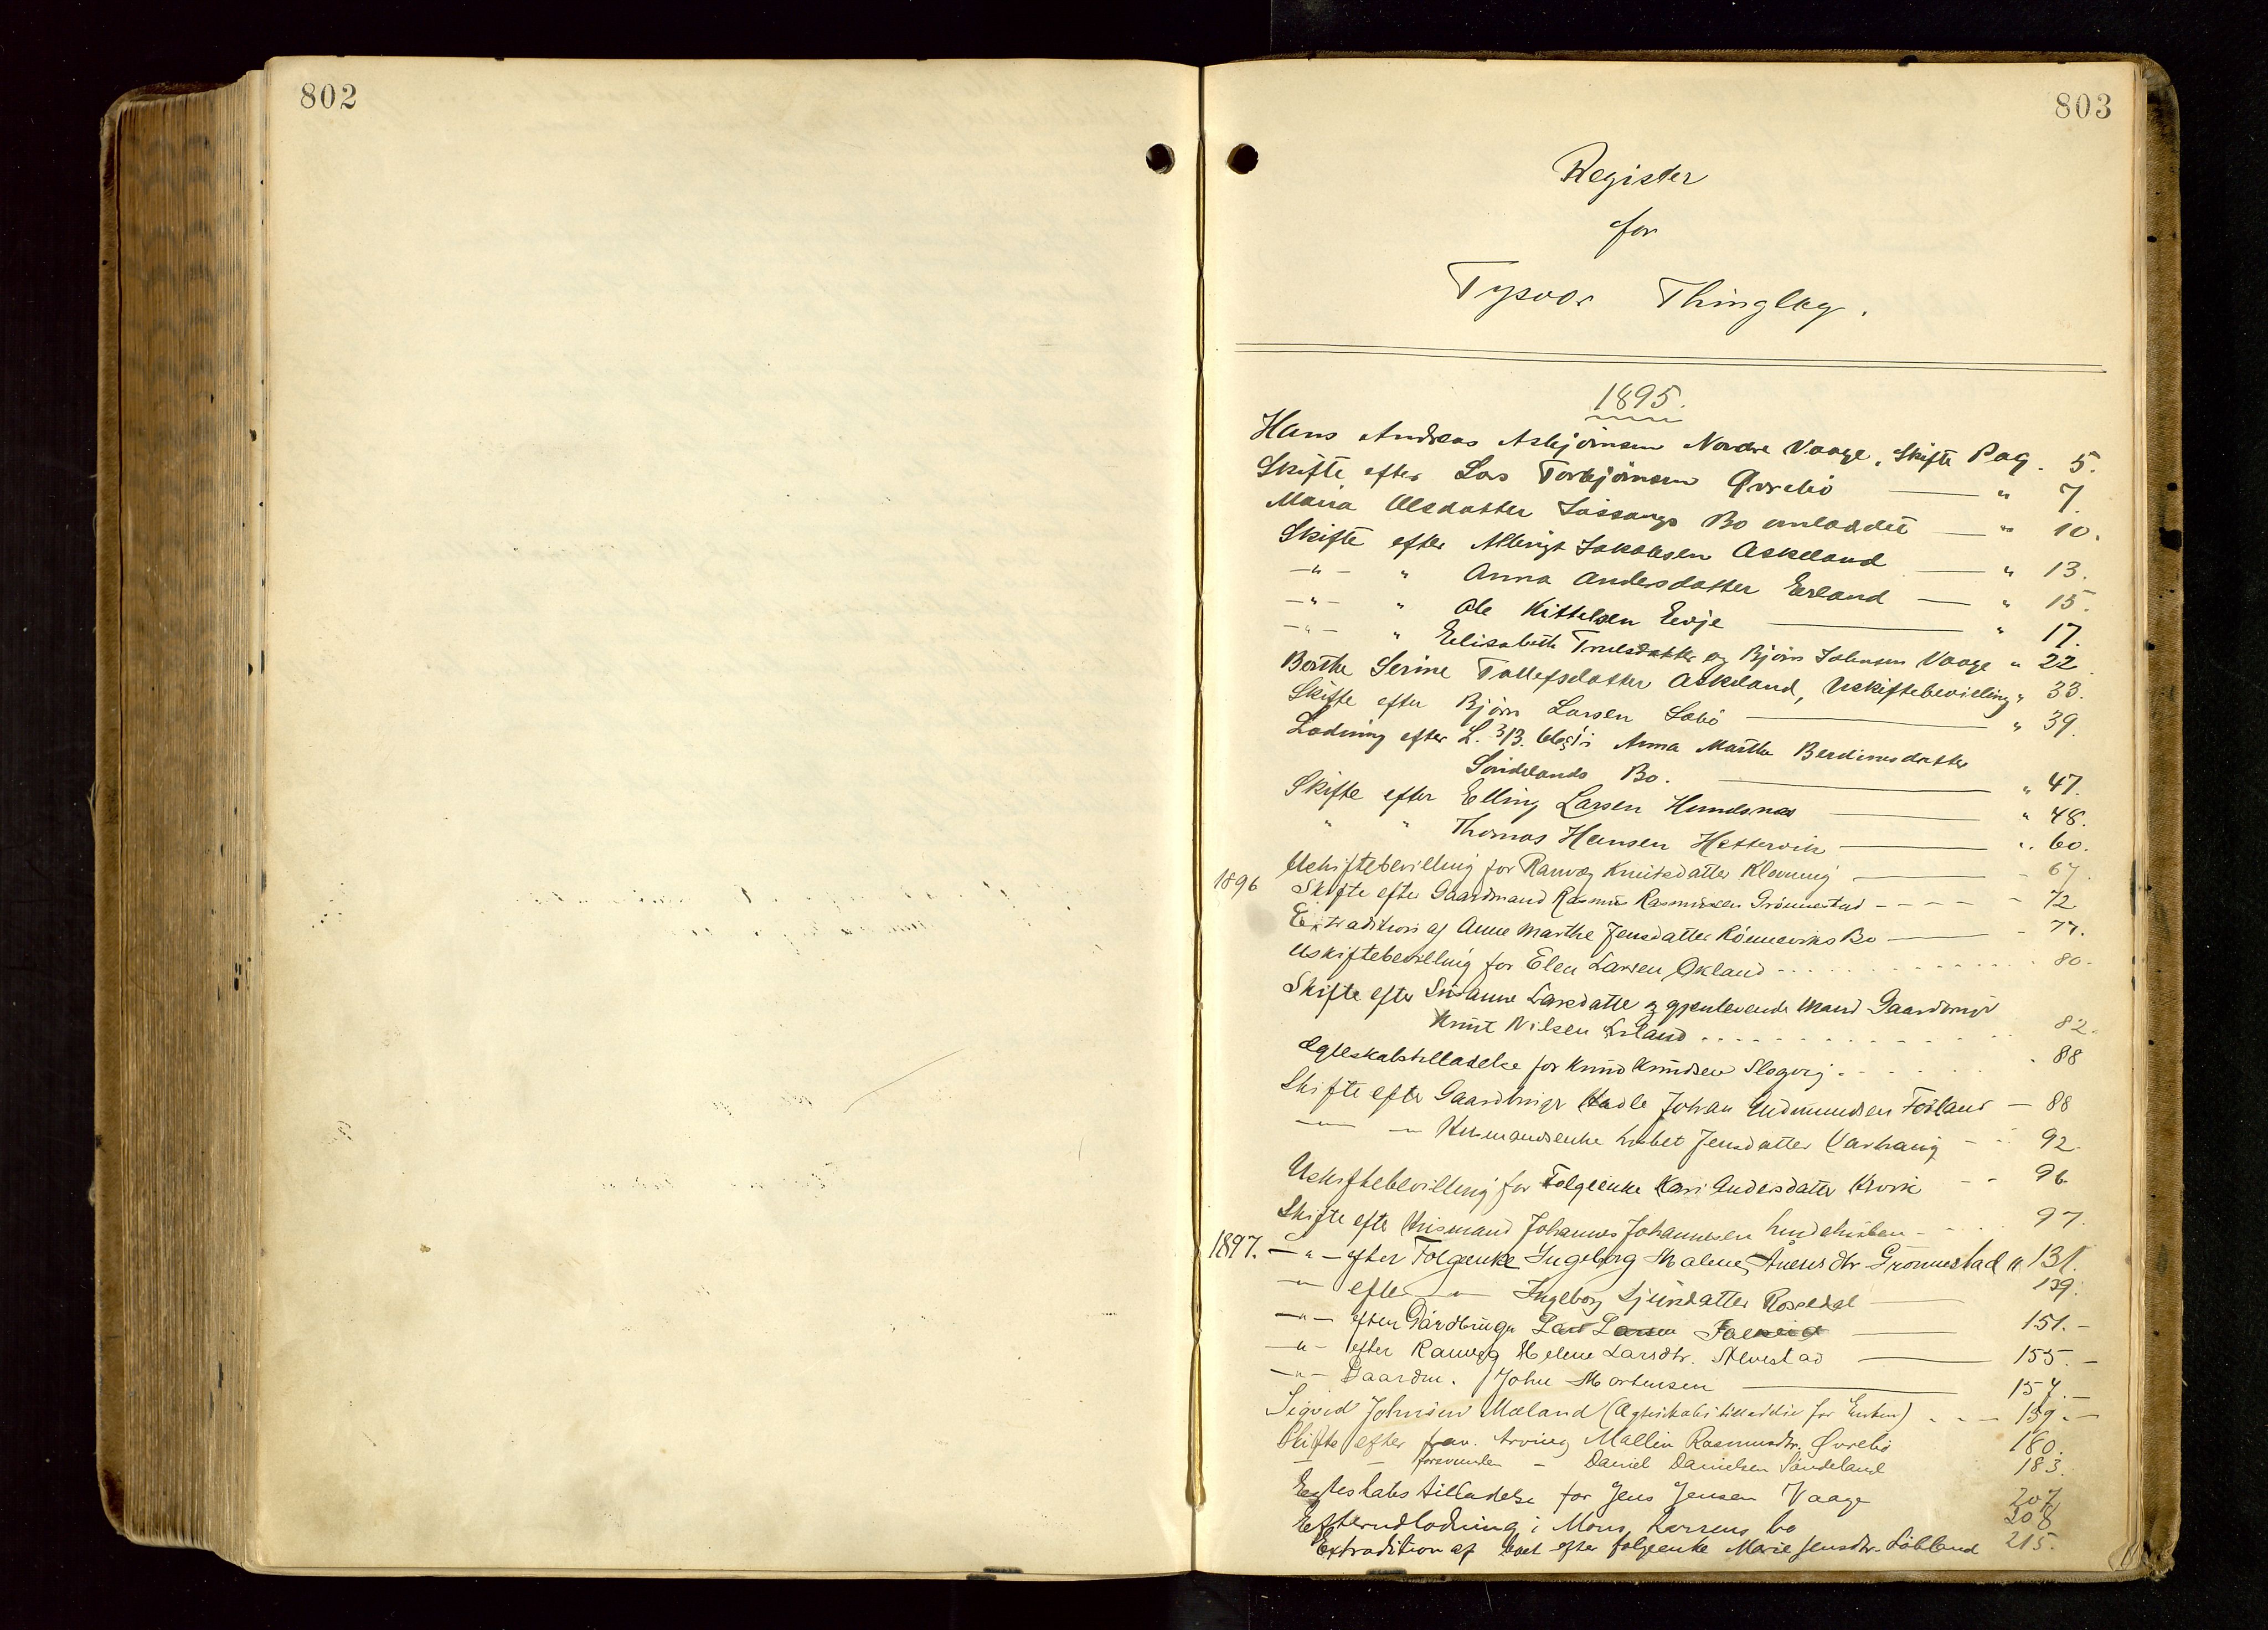 802
803
Register
for
Tysvær Thinglag.
1895.
Hans Andreas Asbjørnsen Nordre Vaage, Skifte Pag. 5.
Skifte efter Lars Torbjørnsen Øvrebø — " 7.
Maria Olsdatter Bo — " 10.
Skifte efter Jakobsen Askeland — " 13.
—"— " Anna Andersdatter Erland — " 15.
—"— " Ole Kittelsen Eevje — " 17.
—"— " Eelisabeth Truelsdatter og Bjørn Johnsen Vaage " 22
Berthe Serine Tollefsdatter Askeland, Uskiftebevilling " 33.
Skifte efter Bjørn Larsen — " 39.
Lodning efter L. 3/3. i Anna Marthe Berdinesdatter
Søndelands Bo. — " 47.
Skifte efter Elling Larsen Hundsnæs — " 48.
" " Thomas Hansen Hettervik — " 60.
Uskiftebevilling for Ranvæg Knutsdatter Klovning — " 67.
1896 Skifte efter Gaardmand Rasmus Rasmussen Grønnestad - - - - - 72
Extradition af Anne Marthe Jensdatter Rønneviks Bo — - 77.
Uskiftebevilling for Elen Larsen Økland - . . . . . . . 80.
Skifte efter Susanne Larsdatter og gjenlevende Mand Gaardbruger
Knut Nilsen Erland . . . . . . . 82.
Ægteskabstilladelse for Knud Knudsen Slogvig . - . . . . 88
Skifte efter Gaardbruger Hadle Johan Gudmundsen Fosland — 88
—"— —"— Husmandsenke Lisbet Jensdatter Varhaug - - 92.
Uskiftebevilling for Folgeenke Kari Andersdatter - - 96
Skifte efter Husmand Johannes Johannesen - . . . 97.
1897. —"— efter Folgeenke Ingeborg Malene dtr Grønnestad " 131.
—"— efter —"— Ingeborg Sjursdatter Rossedal — 139.
—"— efter Gårdbruger Lars Larsen — 151.-
—"— efter Ranveg Helene Larsdtr. Alvestad — 155.-
—"— Gaardm. John Mortensen — 157.-
Sigvid Johnsen Mæland (Ægteskabstilladelse for Enken) . - - 159.-
Skifte efter frav. Arving Mallin Rasmusdtr. Øvrebø 180.
— - forsvunden - Daniel Danielsen Søndeland 183.
Eegteskabs tilladelse for Jens Jensen Vaage 207
Efterudlodning i Mons Larsens bo 208
Extradition af boet efter folgeenke Marie Jensdtr. 215.